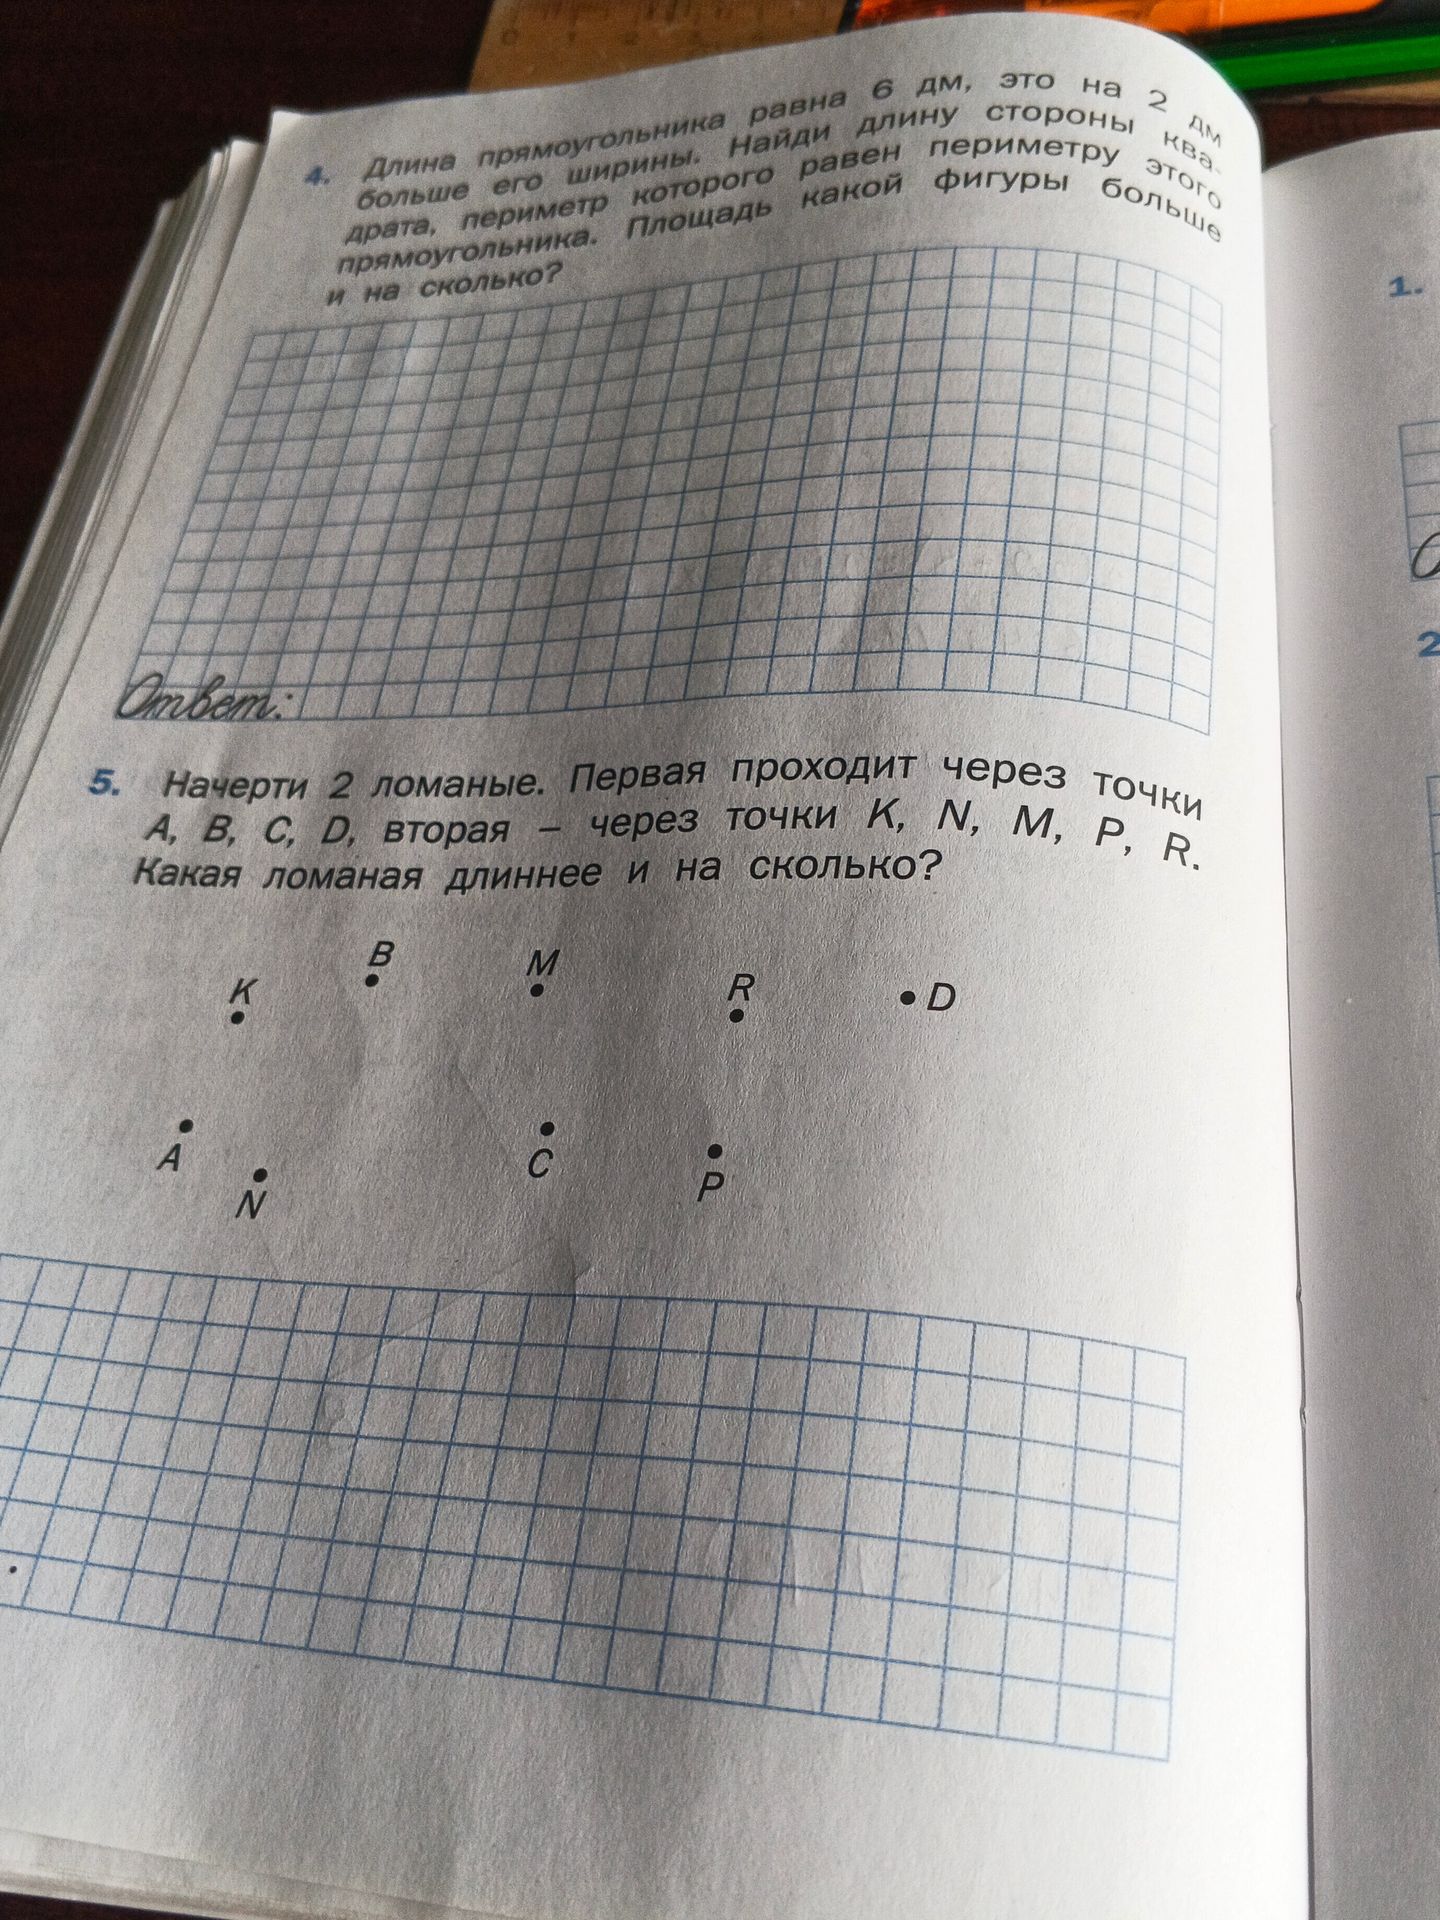 4. Длина прямоугольника равна 6 дм, это на 2 дм
больше его ширины. Найди длину стороны ква-
драта, периметр которого равен периметру этого
прямоугольника. Площадь какой фигуры больше
и на сколько?
Ответ:
5. Начерти 2 ломаные. Первая проходит через точки
A, B, C, D, вторая – через точки K, N, M, P, R.
Какая ломаная длиннее и на сколько?
K B M R D
A N C P
1.
2